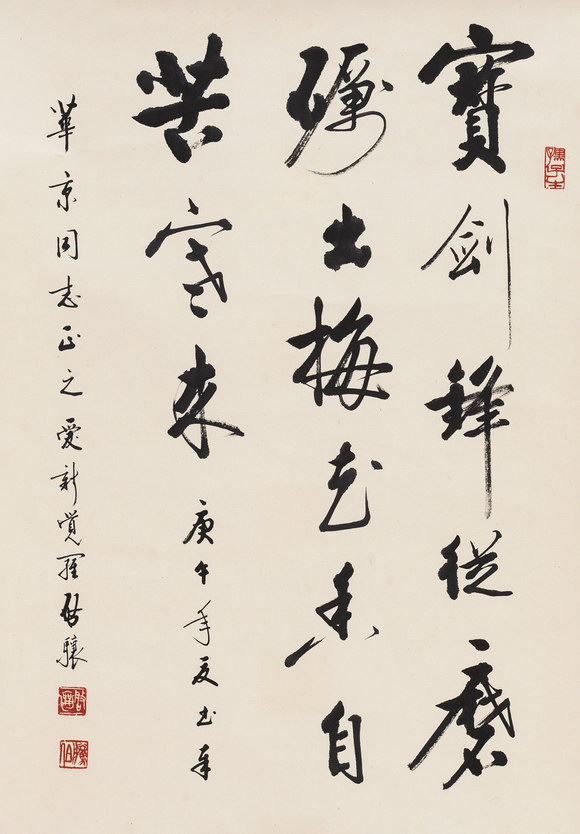 寶劍鋒從磨
礪出梅花香自
苦寒來 庚午年夏書奉
華京同志正之愛新覺羅啓驤